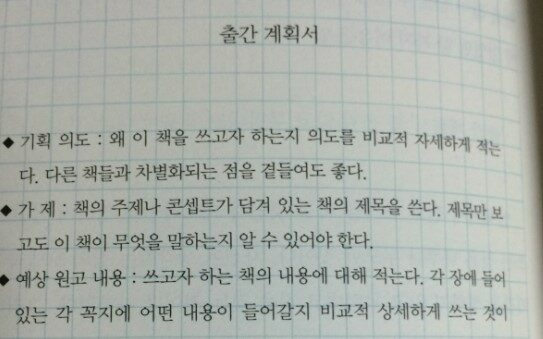 출간 계획서
◆ 기획 의도 : 왜 이 책을 쓰고자 하는지 의도를 비교적 자세하게 적는
다. 다른 책들과 차별화되는 점을 곁들여도 좋다.
◆ 가 제 : 책의 주제나 콘셉트가 담겨 있는 책의 제목을 쓴다. 제목만 보
고도 이 책이 무엇을 말하는지 알 수 있어야 한다.
◆ 예상 원고 내용 : 쓰고자 하는 책의 내용에 대해 적는다. 각 장에 들어
있는 각 꼭지에 어떤 내용이 들어갈지 비교적 상세하게 쓰는 것이